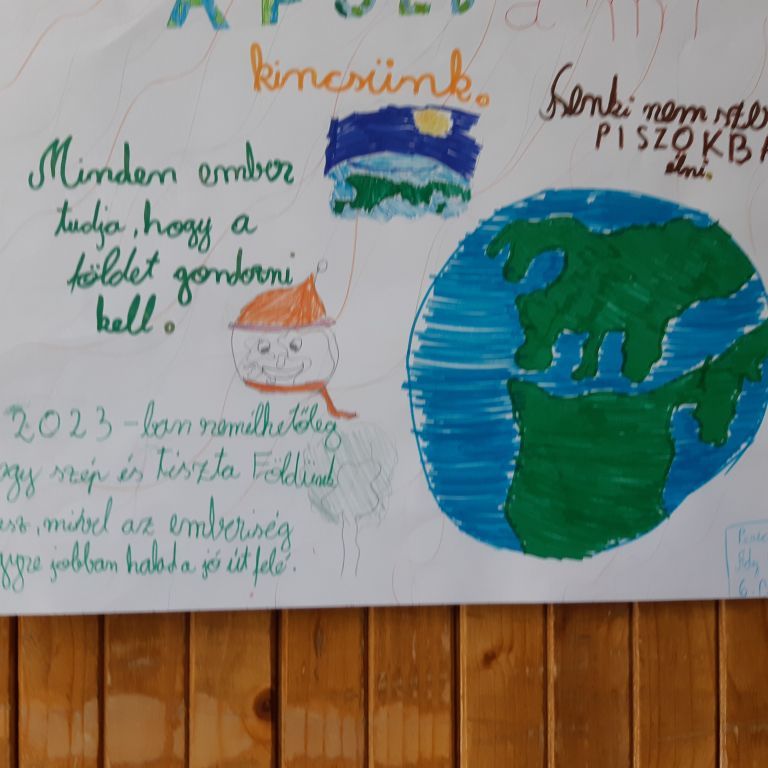 a mi
kincsünk.
Senki nem
PISZOKBA
élni.
Minden ember
tudja, hogy a
földet gondozni
kell.
2023-ban remélhetőleg
szép és tiszta Földünk
mivel az emberiség
jobban halad a jó út felé.
6.